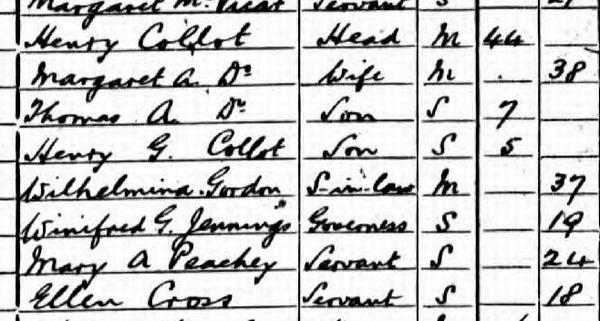 Margaret M. Servant S 27
Henry Collot Head M 44
Margaret A. Do Wife M . 38
Thomas A. Do Son S 7
Henry G. Collot Son S 5
Wilhelmina Gordon S-in-law M 37
Winifred G. Jennings Governess S 19
Mary A Peachey Servant S 24
Ellen Cross Servant S 18